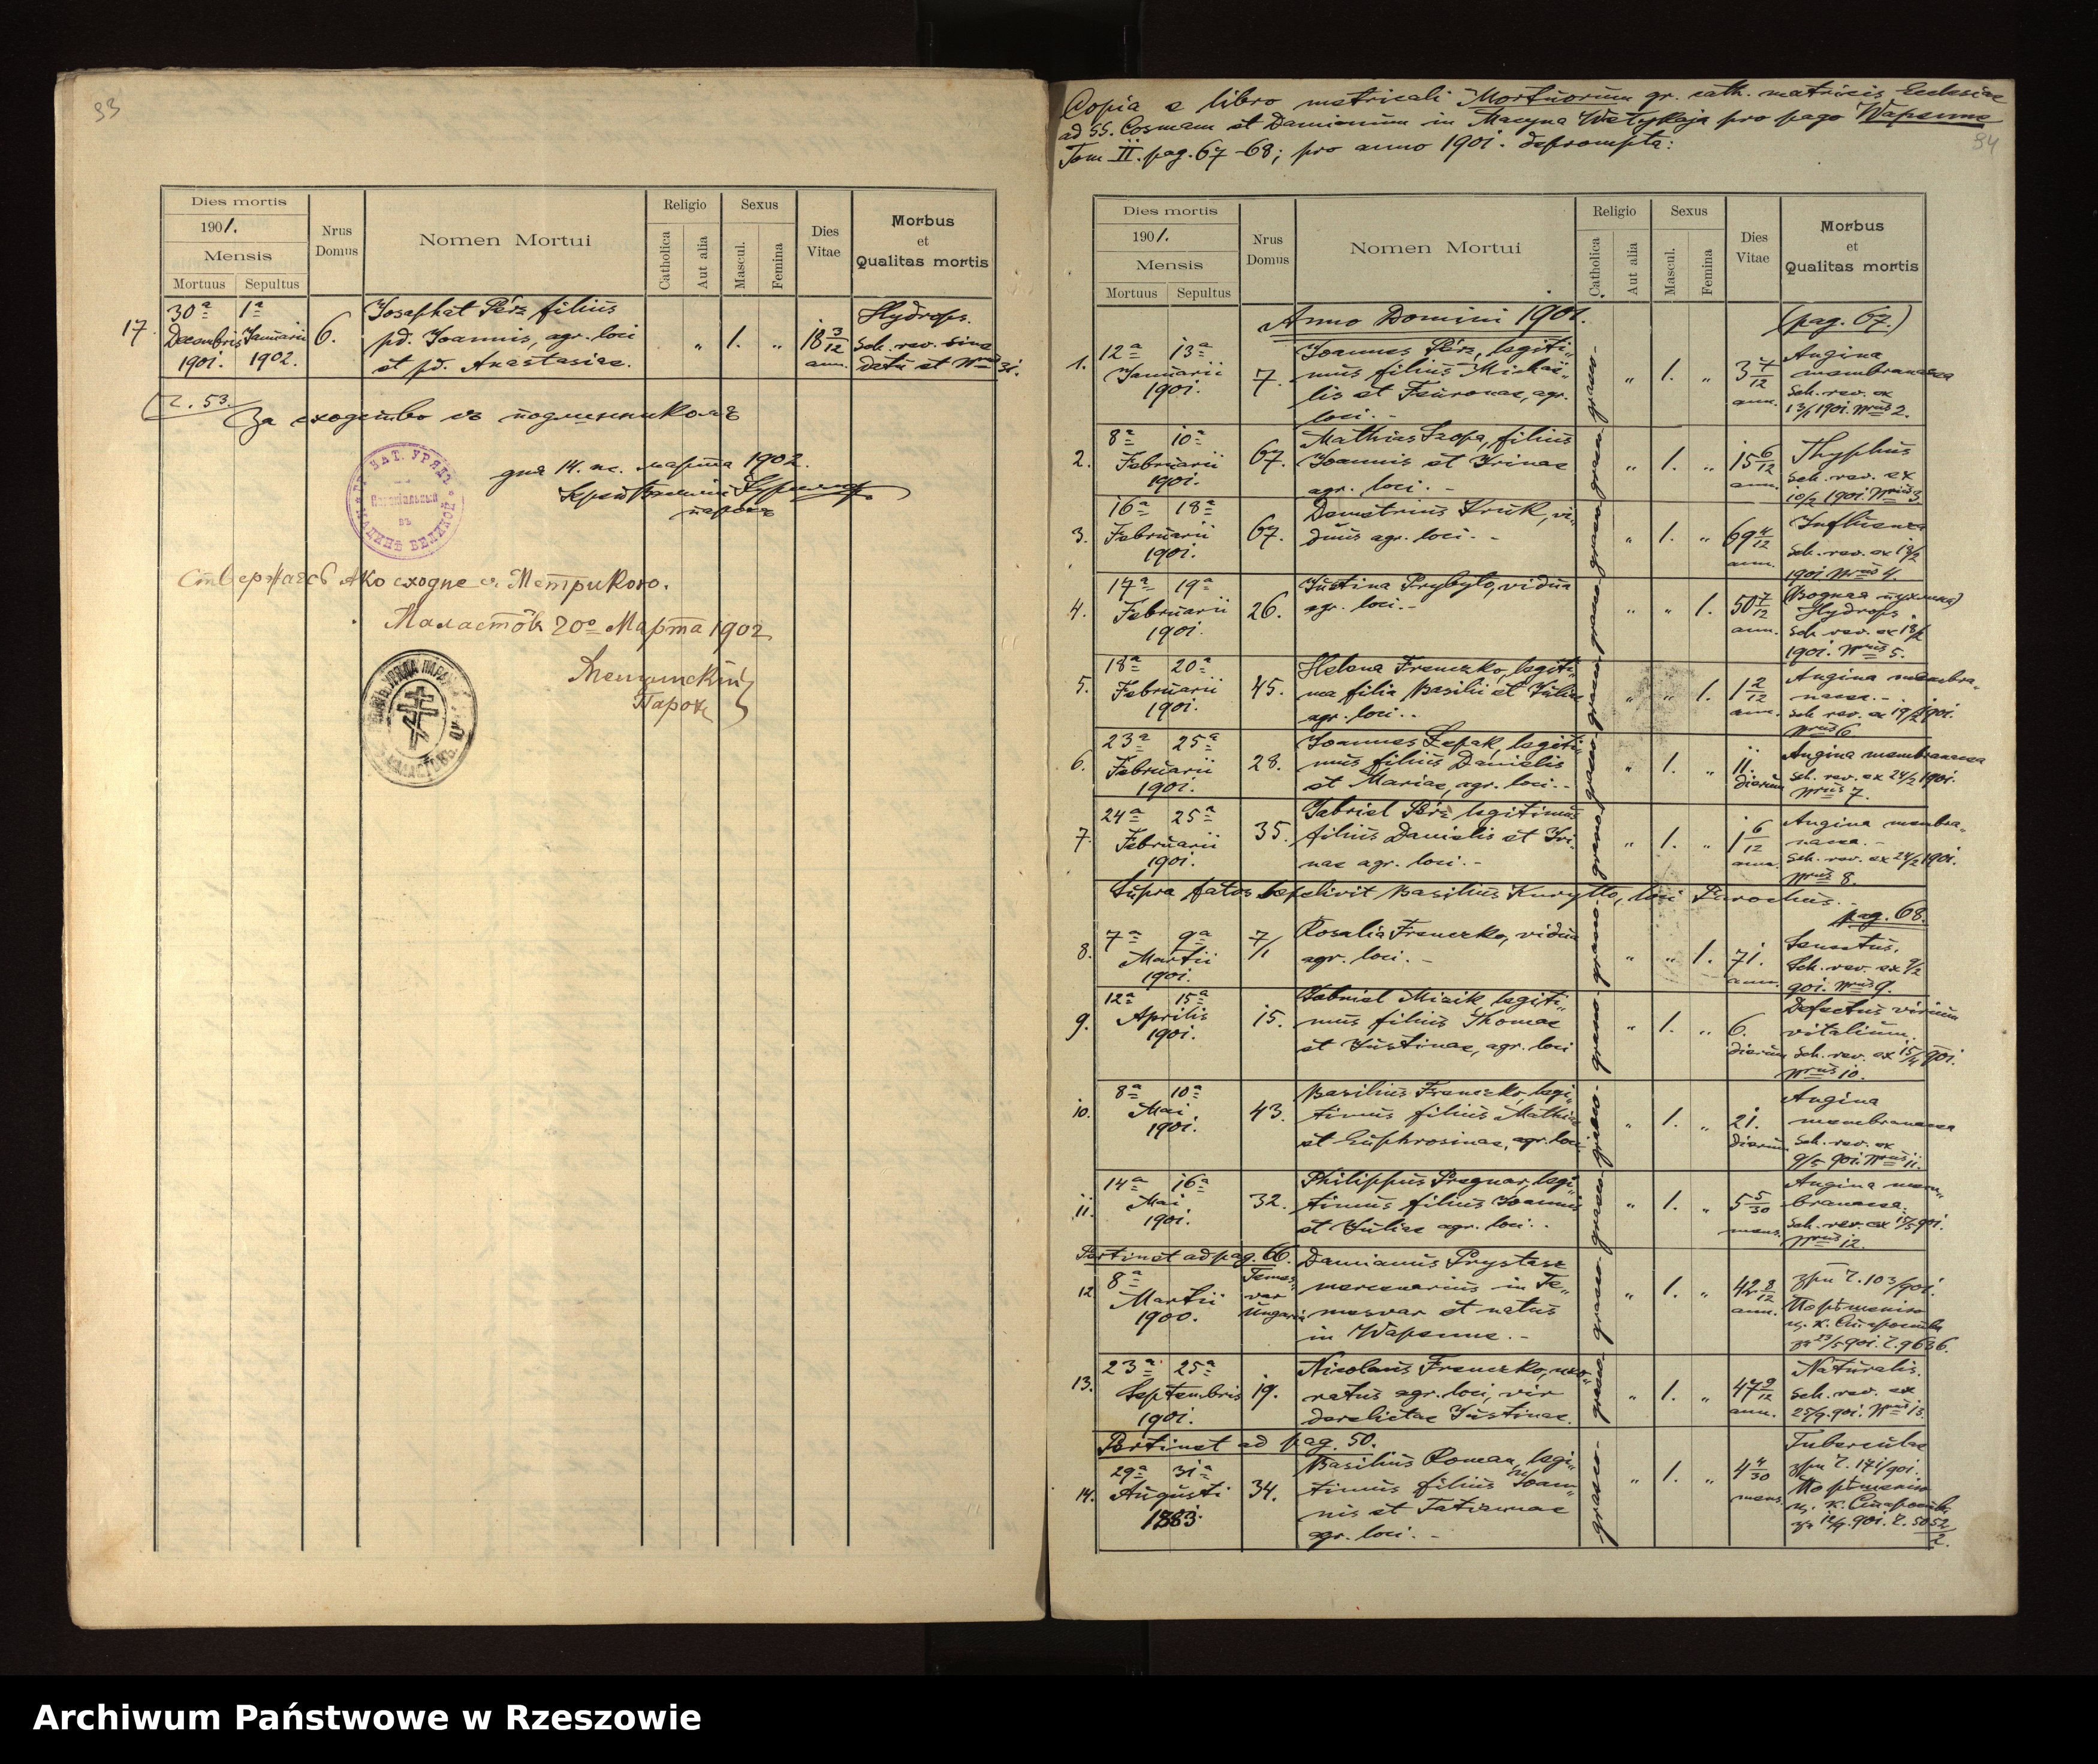 93
Dies mortis
1901.
Mensis
Mortuus Sepultus
Nrus
Domus
Nomen Mortui
Religio
Catholica
Aut alia
Sexus
Mascul.
Femina
Dies
Vitae
Morbus
et
Qualitas mortis
17.
30a 1a
Decembris Januarii
1901. 1902.
6.
Josaphat Pérz filius
pd. Joannis, agr. loci
et pd. Anastasiae.
" 1. "
18 3/12
ann.
Hydrops.
Sch. rev. sine
dato et Nro 31.
Č. 53.
За сходство съ подлинникомъ
дня 14. нс. марта 1902.
парохъ
Стверждаєсь яко сходне съ Метрикою.
Маластôв 20o Марта 1902
Парох
Copia e libro metricali Mortuorum gr. cath. matricis Ecclesiae
ad SS. Cosmam et Damianum in Macyna Wełykaja pro pago Wapenne
Tom II. pag. 67-68; pro anno 1901. deprompta:
94
Dies mortis
1901.
Mensis
Mortuus Sepultus
Nrus
Domus
Nomen Mortui
Religio
Catholica
Aut alia
Sexus
Mascul.
Femina
Dies
Vitae
Morbus
et
Qualitas mortis
Anno Domini 1901.
(pag. 67.)
1.
12a 13a
Januarii
1901.
7.
Joannes Pérz, legiti-
mus filius Michaë-
lis et Feuronae, agr.
loci. -
graeco-
" 1. "
3 4/12
ann.
Angina
membranacea
Sch. rev. ex
13/1 1901. Nrus 2.
2.
8a 10a
Februarii
1901.
67.
Mathias Szopa, filius
Joannis et Irinae
agr. loci. -
graeco-
" 1. "
15 6/12
ann.
Thyphus
Sch. rev. ex
10/2 1901. Nrus 3.
3.
16a 18a
Februarii
1901.
67.
Demetrius Kruk, vi-
duus agr. loci. -
graeco-
" 1. "
69 4/12
ann.
Influenza
Sch. rev. ex 18/2
1901 Nrus 4.
4.
17a 19a
Februarii
1901.
26.
Justina Prybyło, vidua
agr. loci. -
graeco-
" " 1.
50 7/12
ann.
(Водная пухлина)
Hydrops
Sch. rev. ex 18/2
1901. Nrus 5.
5.
18a 20a
Februarii
1901.
45.
Helena Frenczko, legiti-
ma filia Basilii et Juliae
agr. loci. -
graeco-
" " 1.
1 2/12
ann.
Angina membra-
nacea. -
Sch. rev. ex 19/2 1901.
Nrus 6
6.
23a 25a
Februarii
1901.
28.
Joannes Żepak, legiti-
mus filius Danielis
et Mariae, agr. loci. -
graeco-
" 1. "
11.
dierum
Angina membranacea
Sch. rev. ex 24/2 1901.
Nrus 7.
7.
24a 25a
Februarii
1901.
35.
Gabriel Pérz, legitimus
filius Danielis et Iri-
nae agr. loci. -
graeco-
" 1. "
1 6/12
ann.
Angina membra-
nacea. -
Sch. rev. ex 24/2 1901.
Nrus 8.
Supra fatos sepelivit Basilius Kuryłło, loci Parochus. -
pag. 68.
8.
7a 9a
Martii
1901.
7/1
Rosalia Frenczko, vidua
agr. loci. -
graeco-
" " 1.
71.
ann.
Senectus.
Sch. rev. ex 9/2
901. Nrus 9.
9.
12a 15a
Aprilis
1901.
15.
Gabriel Misik, legiti-
mus filius Thomae
et Justinae, agr. loci
graeco-
" 1. "
6.
dierum
Defectus virium
vitalium.
Sch. rev. ex 15/4 901.
Nrus 10.
10.
8a 10a
Mai
1901.
43.
Basilius Frenczko, legi-
timus filius Mathiae
et Euphrosinae, agr. loci
graeco-
" 1. "
21.
dierum
Angina
membranacea
Sch. rev. ex
9/5 901. Nrus 11.
11.
14a 16a
Mai
1901.
32.
Philippus Pregnar, legi-
timus filius Joannis
et Juliae agr. loci. -
graeco-
" 1. "
5 5/30
mens.
Angina mem-
branacea.
Sch. rev. ex 15/5 901.
Nrus 12.
Pertinet ad pag. 66.
12.
8a
Martii
1900.
Temes-
var
Ungaria
Damianus Prystasz
mercenarius in Te-
mesvar et natus
in Wapenne. -
graeco-
" 1. "
42 8/12
ann.
зри Č. 103/901.
Порѣшенiю
ц. к. Староства
зъ 23/5 901. Č. 9636.
13.
23a 25a
Septembris
1901.
19.
Nicolaus Frenczko, uxo-
ratus agr. loci, vir
derelictae Justinae.
graeco-
" 1. "
47 9/12
ann.
Naturalis.
Sch. rev. ex
25/9. 901. Nrus 13.
Pertinet ad pag. 50.
14.
29a 31a
Augusti
1883.
34.
Basilius Roman, legi-
timus filius Joan-
nis et Tatiannae
agr. loci. -
graeco-
" 1. "
4 4/30
mens.
Tuberculae
зри Č. 171/901.
Порѣшенiю
ц. к. Староства
зъ 12/9. 901. Č. 5052/2.
Archiwum Państwowe w Rzeszowie